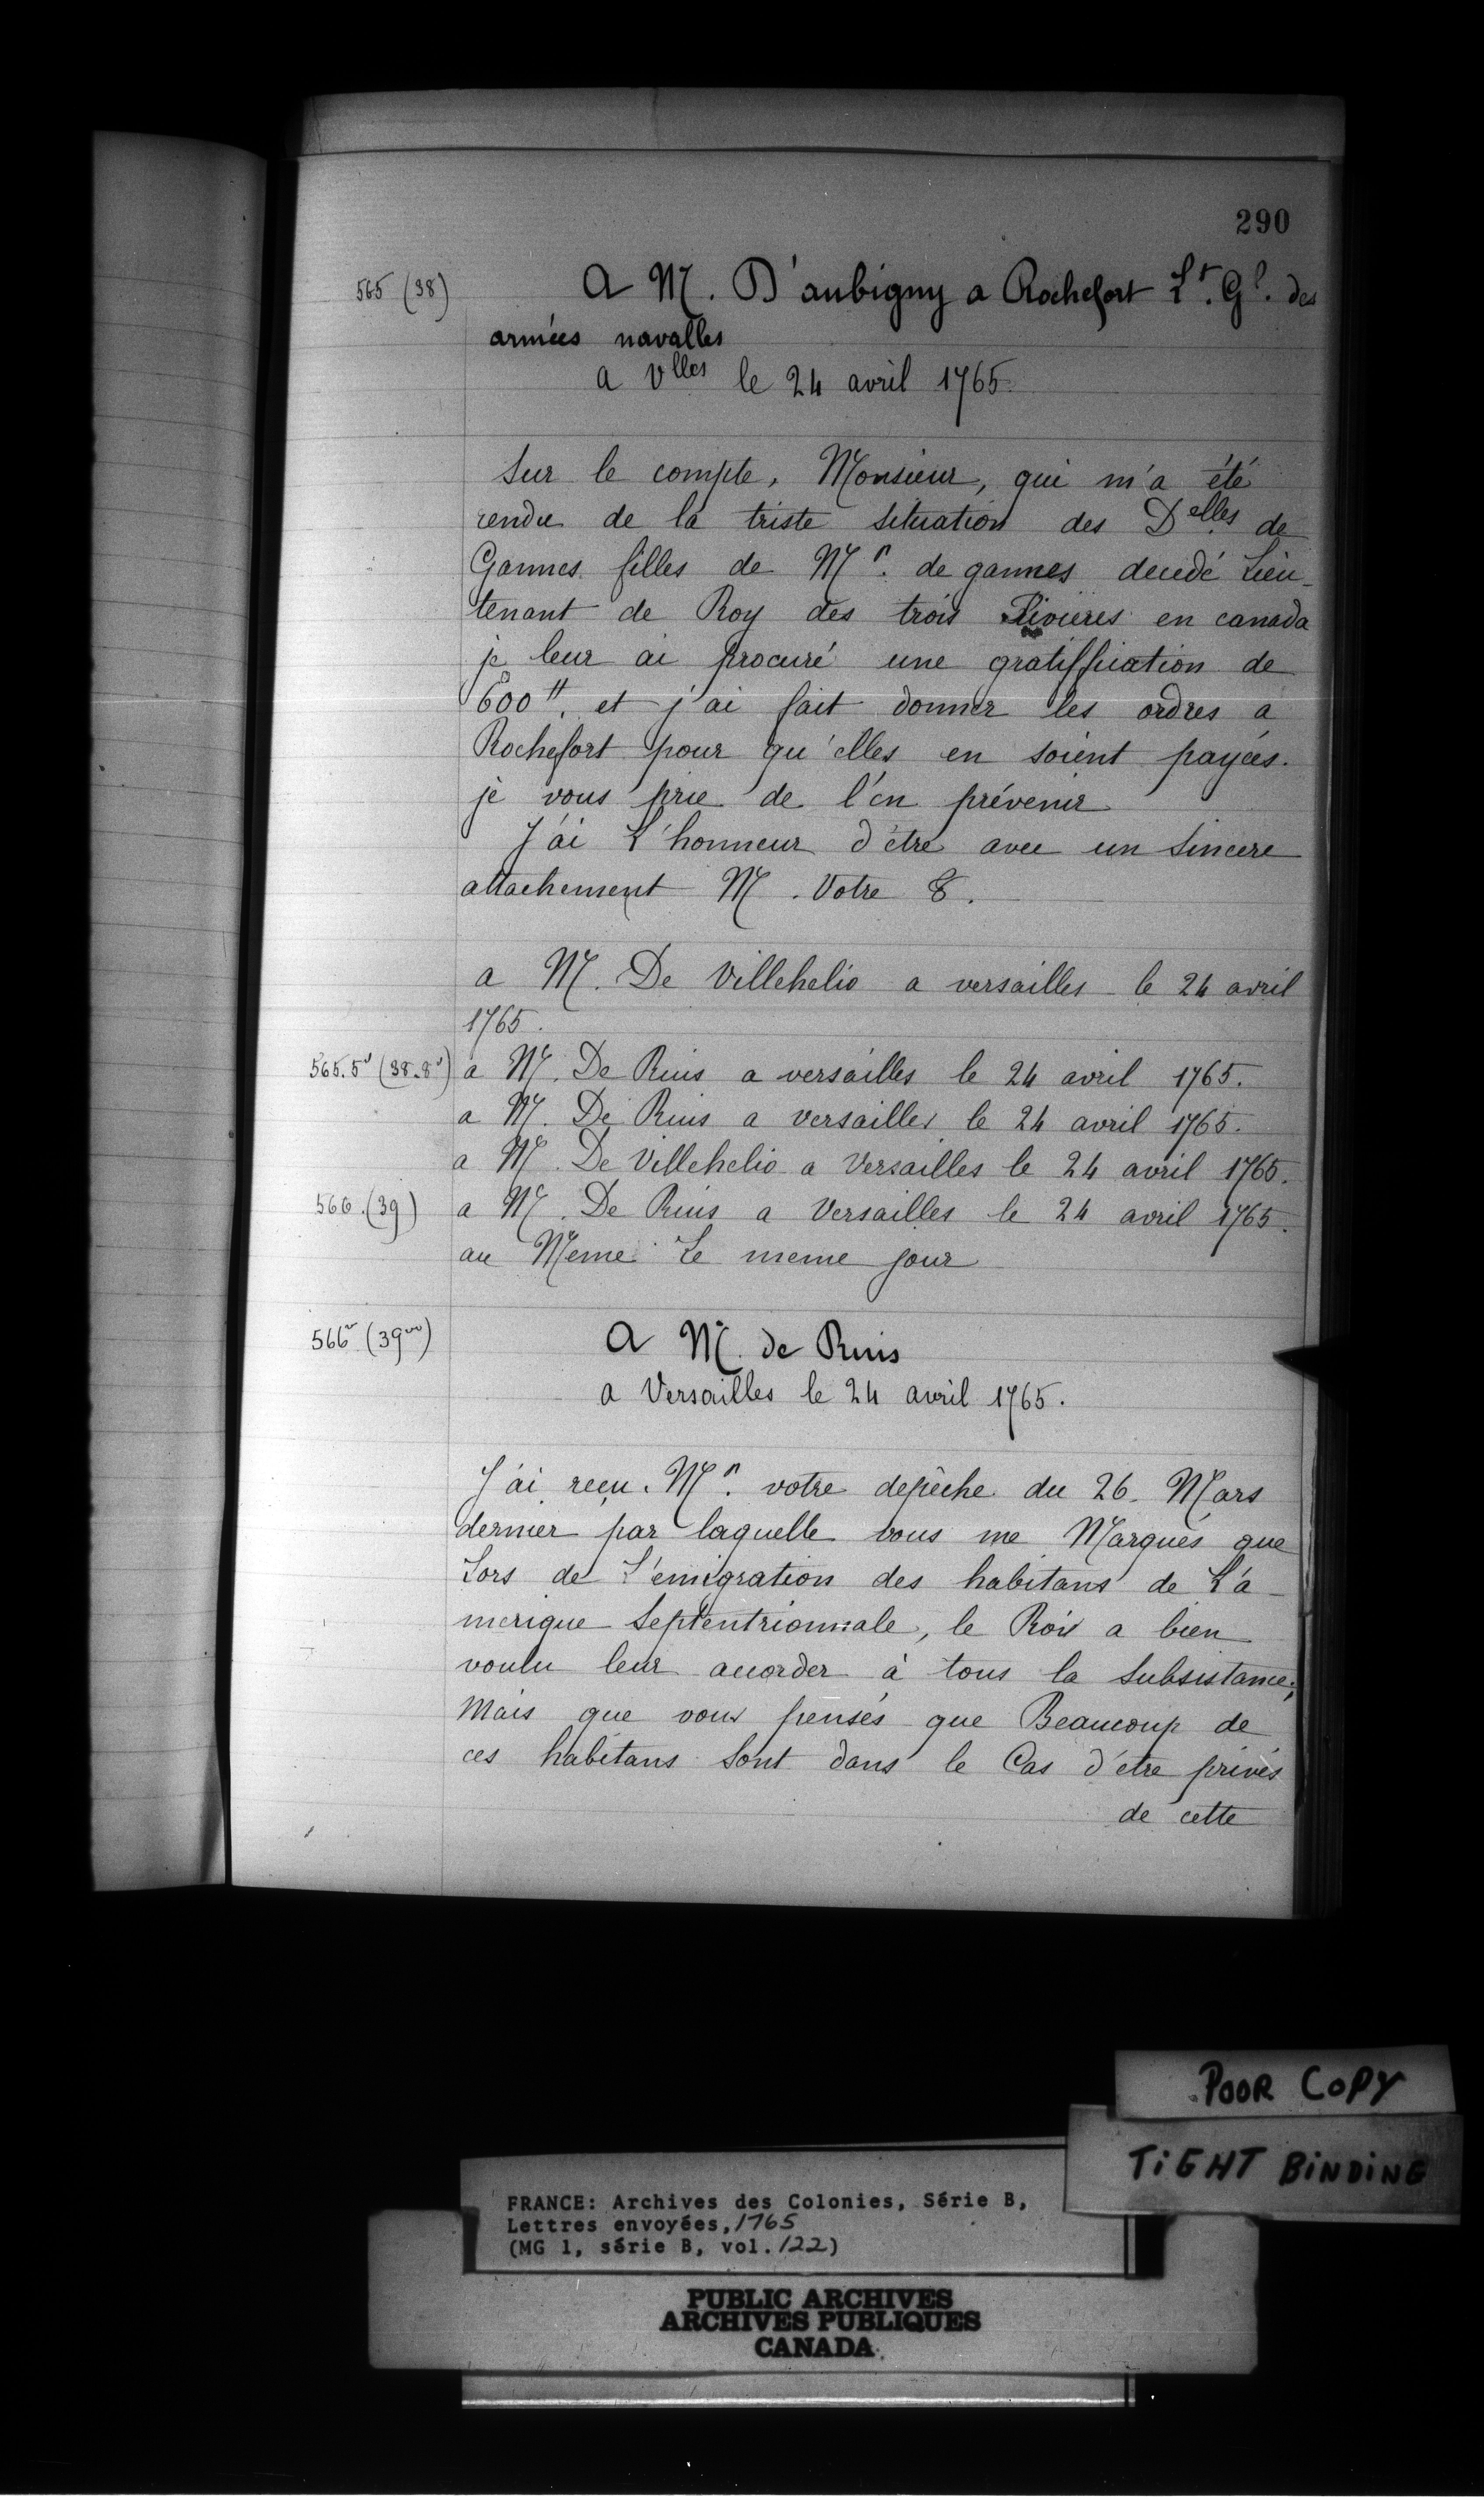 290
565 (38)
A M. D'aubigny a Rochefort Lt. Gl. des
armées navalles
a Vlles le 24 avril 1765.
Sur le compte, Monsieur, qui m'a été
rendu de la triste situation des Delles de
Gannes filles de Mr. de gannes decedé Lieu-
tenant de Roy des trois Rivieres en canada
je leur ai procuré une gratiffication de
600tt. et j'ai fait donner les ordres a
Rochefort pour qu'elles en soient payées.
je vous prie de l'en prévenir
J'ai L'honneur d'être avec un Sincere
attachement M. Votre &.
a M. De Villehelio a versailles le 24 avril
1765.
565.5v (38.8v) a M. De Ruis a versailles le 24 avril 1765.
a M. De Ruis a versailles le 24 avril 1765.
a M. De Villehelio a Versailles le 24 avril 1765.
566.(39) a M. De Ruis a Versailles le 24 avril 1765.
au Meme Le meme jour
566v (39vo)
A M. de Ruis
a Versailles le 24 avril 1765.
J'ai reçu. Mr. votre depêche du 26. Mars
dernier par laquelle vous me Marqués que
Lors de L'emigration des habitans de L'a-
merique Septentrionnale, le Roi a bien
voulu leur accorder à tous la Subsistance;
Mais que vous pensés que Beaucoup de
ces habitans Sont dans le Cas d'etre privés
de cette
POOR COPY
TIGHT BINDING
FRANCE: Archives des Colonies, Série B,
Lettres envoyées, 1765
(MG 1, série B, vol. 122)
PUBLIC ARCHIVES
ARCHIVES PUBLIQUES
CANADA